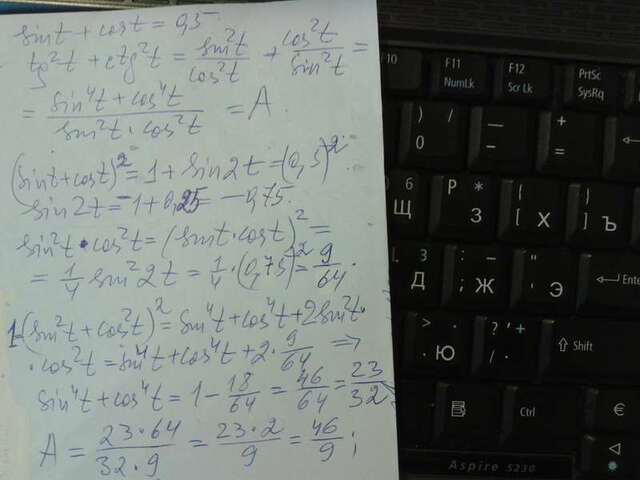 sint + cost = 0,5
tg²t + ctg²t = sin²t/cos²t + cos²t/sin²t =
= (sin⁴t + cos⁴t)/(sin²t · cos²t) = A.
(sint + cost)² = 1 + sin2t = (0,5)².
sin2t = -1 + 0,25 = -0,75.
sin²t · cos²t = (sint · cost)² =
= 1/4 sin²2t = 1/4 · (0,75)² = 9/64.
1 = (sin²t + cos²t)² = sin⁴t + cos⁴t + 2sin²t ·
· cos²t = sin⁴t + cos⁴t + 2 · 9/64 ⇒
sin⁴t + cos⁴t = 1 - 18/64 = 46/64 = 23/32
A = 23·64/32·9 = 23·2/9 = 46/9 ;
F10
F11 NumLk
F12 Scr Lk
PrtSc SysRq
) / 0
— -
+ =
6 Щ
Р * З
{ [ Х
} ] Ъ
L 3 Д
: ; Ж
" ' Э
Enter
> . Ю
? , + / .
⇧ Shift
Ctrl
€
Aspire 5230